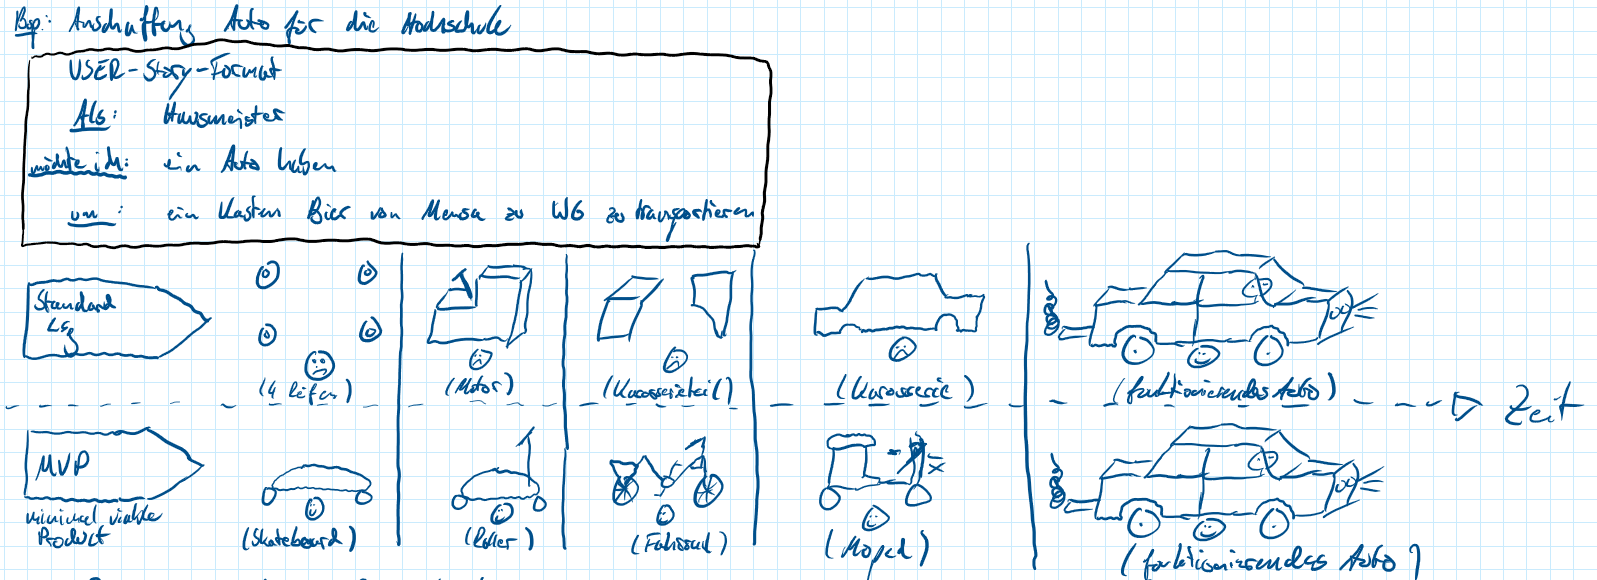 Bsp: Anschaffung Auto für die Hochschule
USER-Story-Format
Als: Hausmeister
möchte ich: ein Auto haben
um: ein Kasten Bier von Mensa zu WG zu transportieren
Standard
Lsg
(4 Reifen)
(Motor)
(Karosserieteil)
(Karosserie)
(funktionierendes Auto)
Zeit
MVP
minimal viable
Product
(Skateboard)
(Roller)
(Fahrrad)
(Moped)
(funktionierendes Auto)